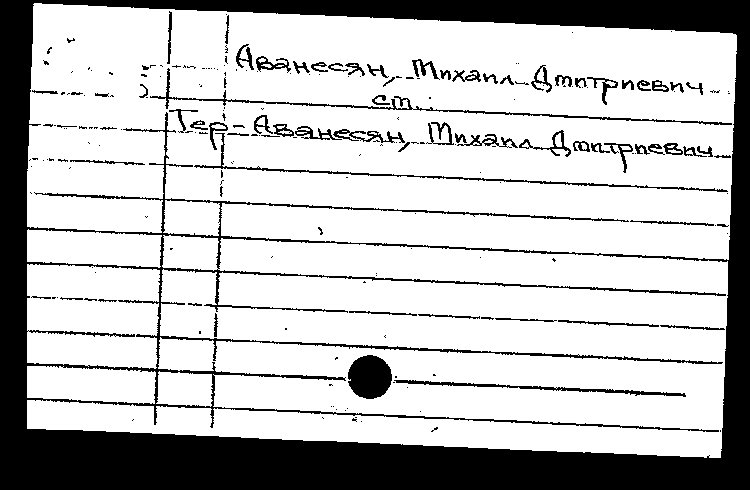 Аванесян, Михаил Дмитриевич
см.
Тер-Аванесян, Михаил Дмитриевич